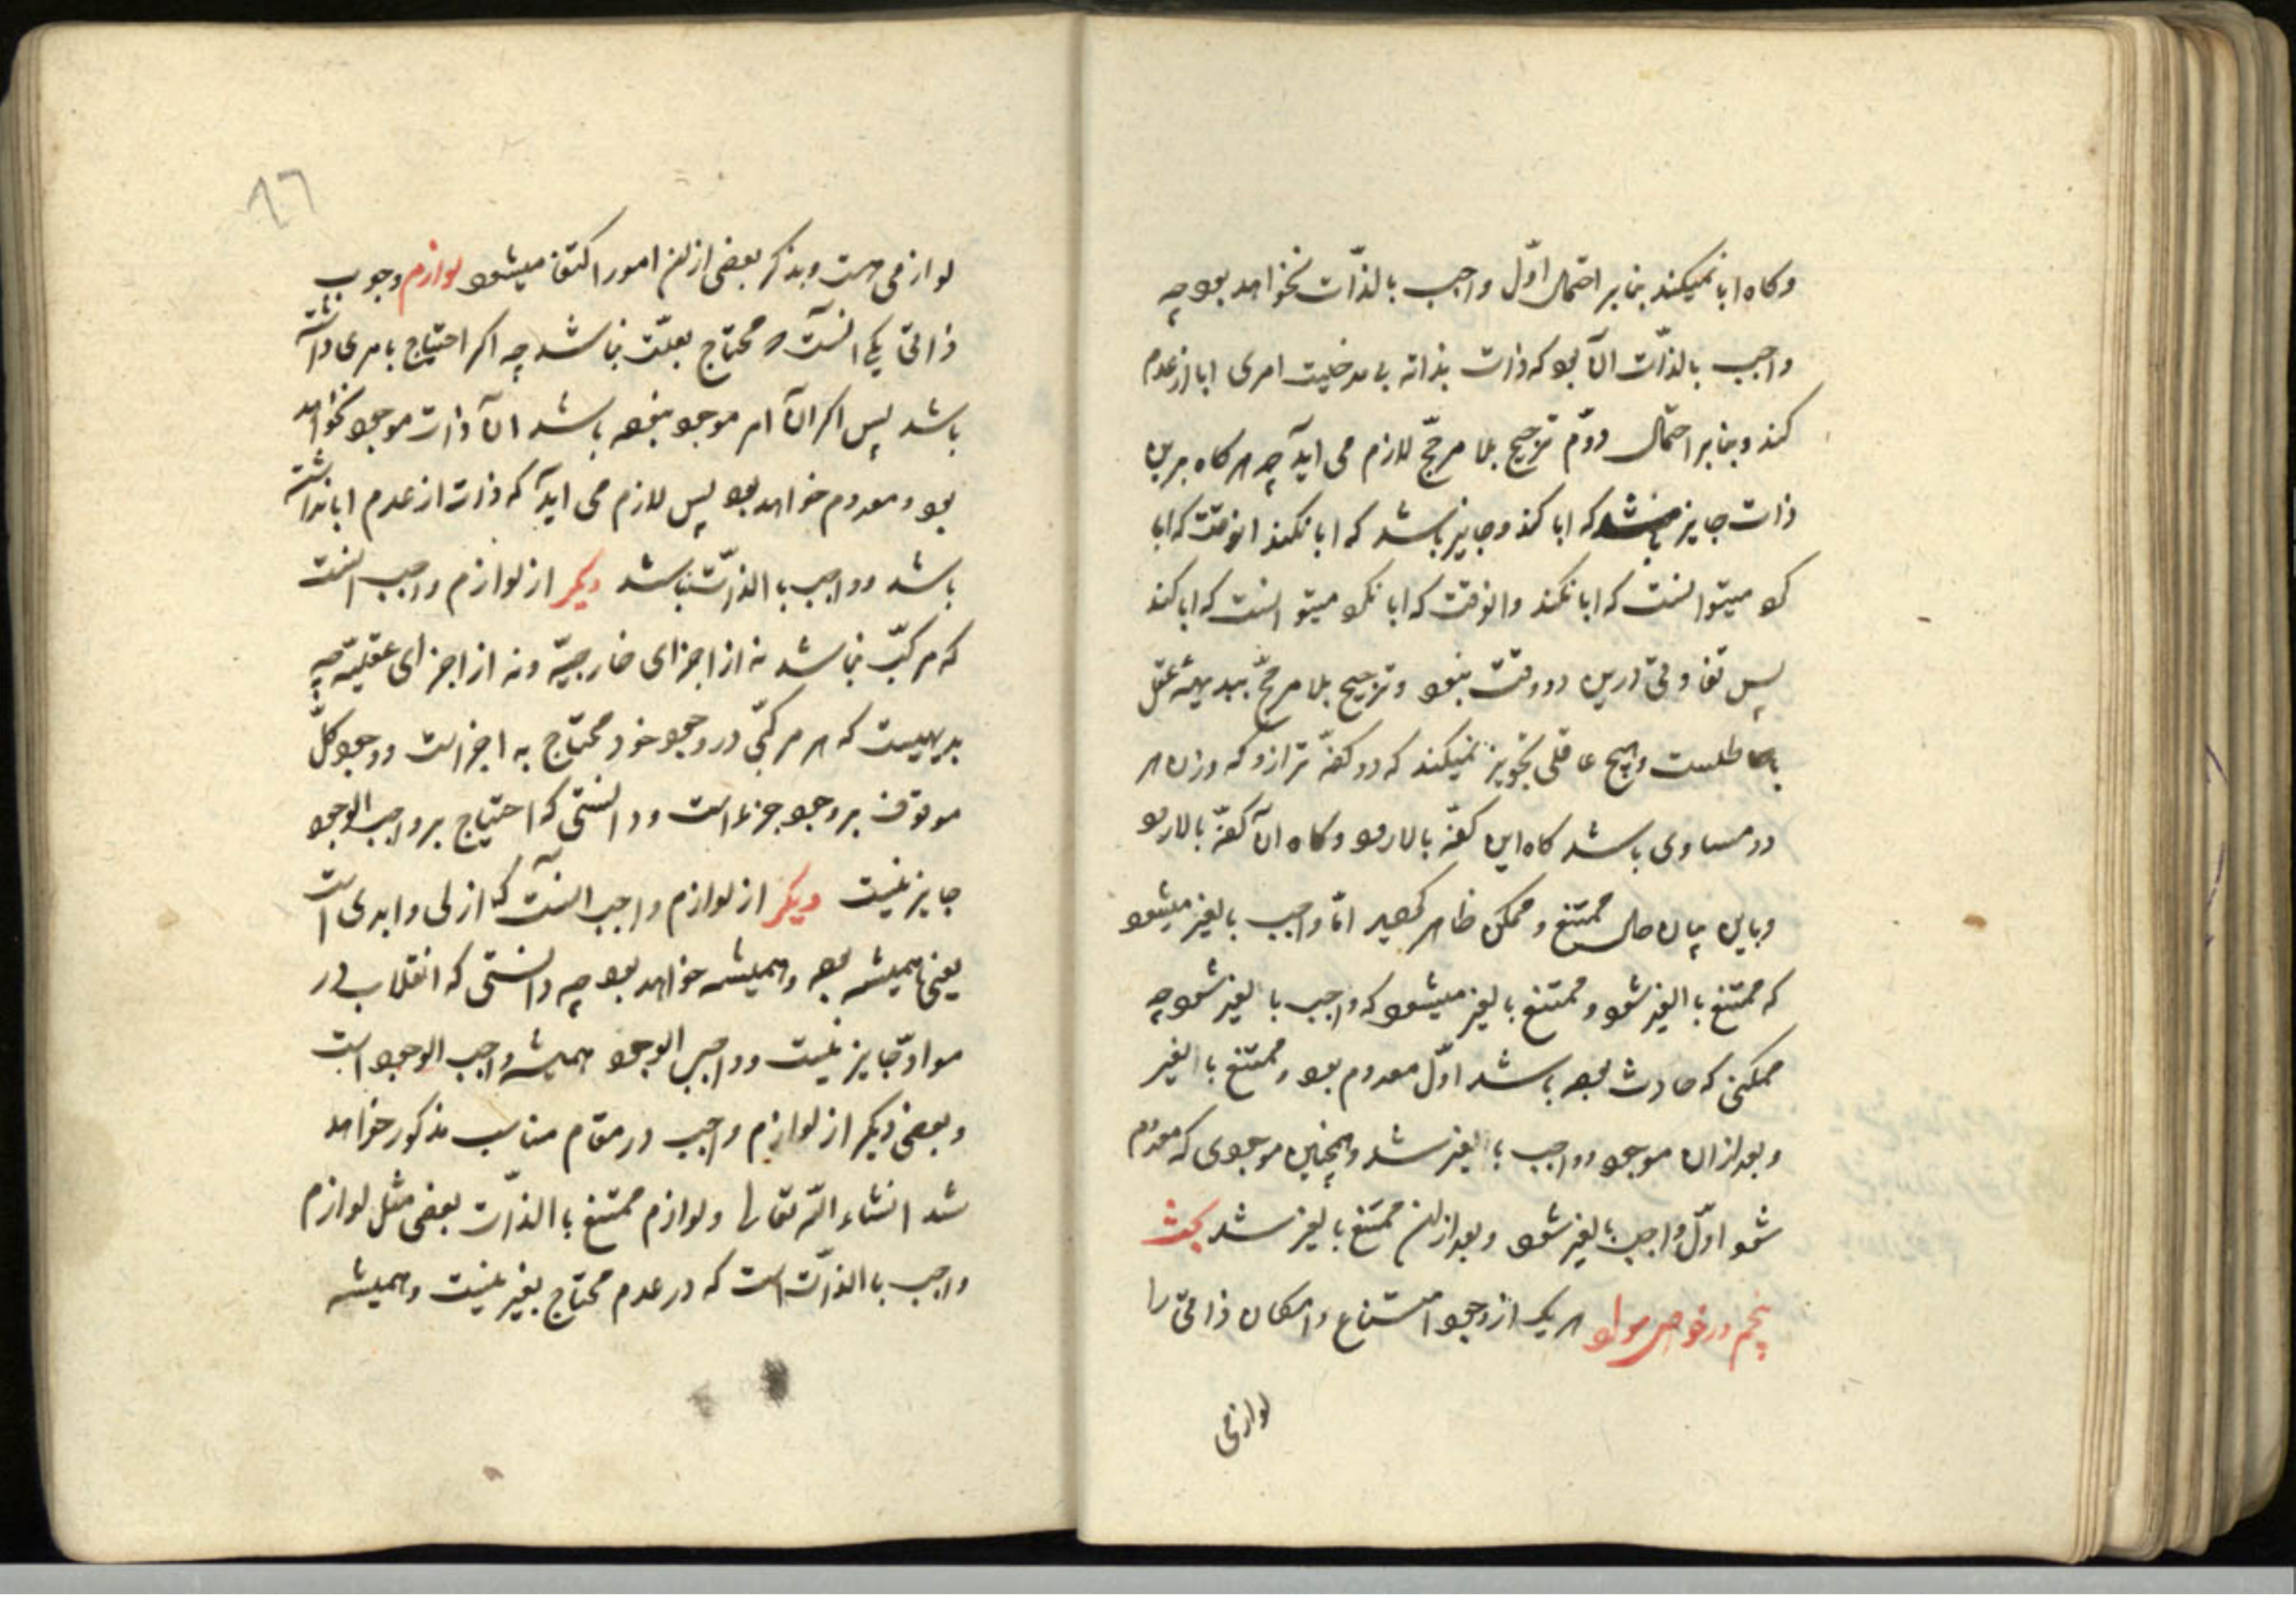 وكاه ابا نميكند بنا بر احتمال اوّل واجب بالذّات نخواهد بود چه
واجب بالذّات آن بود كه ذات بذاته بى مدخليت امرى ابا از عدم
كند و بنا بر احتمال دوّم ترجيح بلا مرجّح لازم مى آيد چه هر كاه برين
ذات جايز باشد كه ابا كند و جايز باشد كه ابا نكند انوقت كه ابا
كرد ميتوانست كه ابا نكند و انوقت كه ابا نكرد ميتوانست كه ابا كند
پس تفاوتى درين دو وقت نبود و ترجيح بلا مرجّح ببديهه عقل
باطلست و هيچ عاقلى تجويز نميكند كه دو كفّه ترازو كه وزن هر
دو مساوى باشد كاه اين كفّه بالا رود و كاه آن كفّه بالا رود
و باين بيان حال ممتنع و ممكن ظاهر كرديد امّا واجب بالغير ميشود
كه ممتنع با الغير شود و ممتنع بالغير ميشود كه واجب با لغير شود چه
ممكنى كه حادث بوده باشد اوّل معدوم بود و ممتنع با الغير
و بعد از ان موجود و واجب با لغير شد و همچنين موجودى كه معدوم
شود اوّل واجب بالغير شود و بعد از ان ممتنع بالغير شد بحث
پنجم در خواص مواد هر يك از وجود امتناع و امكان ذاتى را
لوازمى
١٦
لوازمى هست و بذكر بعضى از ان امور اكتفا ميشود لوازم وجوب
ذاتى يكى آنست كه محتاج بعلّت نباشد چه اكر احتياج بامرى داشته
باشد پس اكر آن امر موجود نبوده باشد آن ذات موجود نخواهد
بود و معدوم خواهد بود پس لازم مى آيد كه ذات از عدم ابا نداشته
باشد و واجب با الذّات نباشد ديكر از لوازم واجب آنست
كه مركّب نباشد نه از اجزاى خارجيّه و نه از اجزاى عقليّه چه
بديهيست كه هر مركّبى در وجود خود محتاج به اجزاست و وجود كلّ
موقوف بر وجود جزء است و دانستى كه احتياج بر واجب الوجود
جايز نيست ديكر از لوازم واجب آنست كه ازلى و ابدى است
يعنى هميشه بوده و هميشه خواهد بود چه دانستى كه انقلاب در
موادّ جايز نيست و واجب الوجود هميشه واجب الوجود است
و بعضى ديكر از لوازم واجب در مقام مناسب مذكور خواهد
شد انشاء الله تعالى و لوازم ممتنع با الذّات بعضى مثل لوازم
واجب با الذّات است كه در عدم محتاج بغير نيست و هميشه